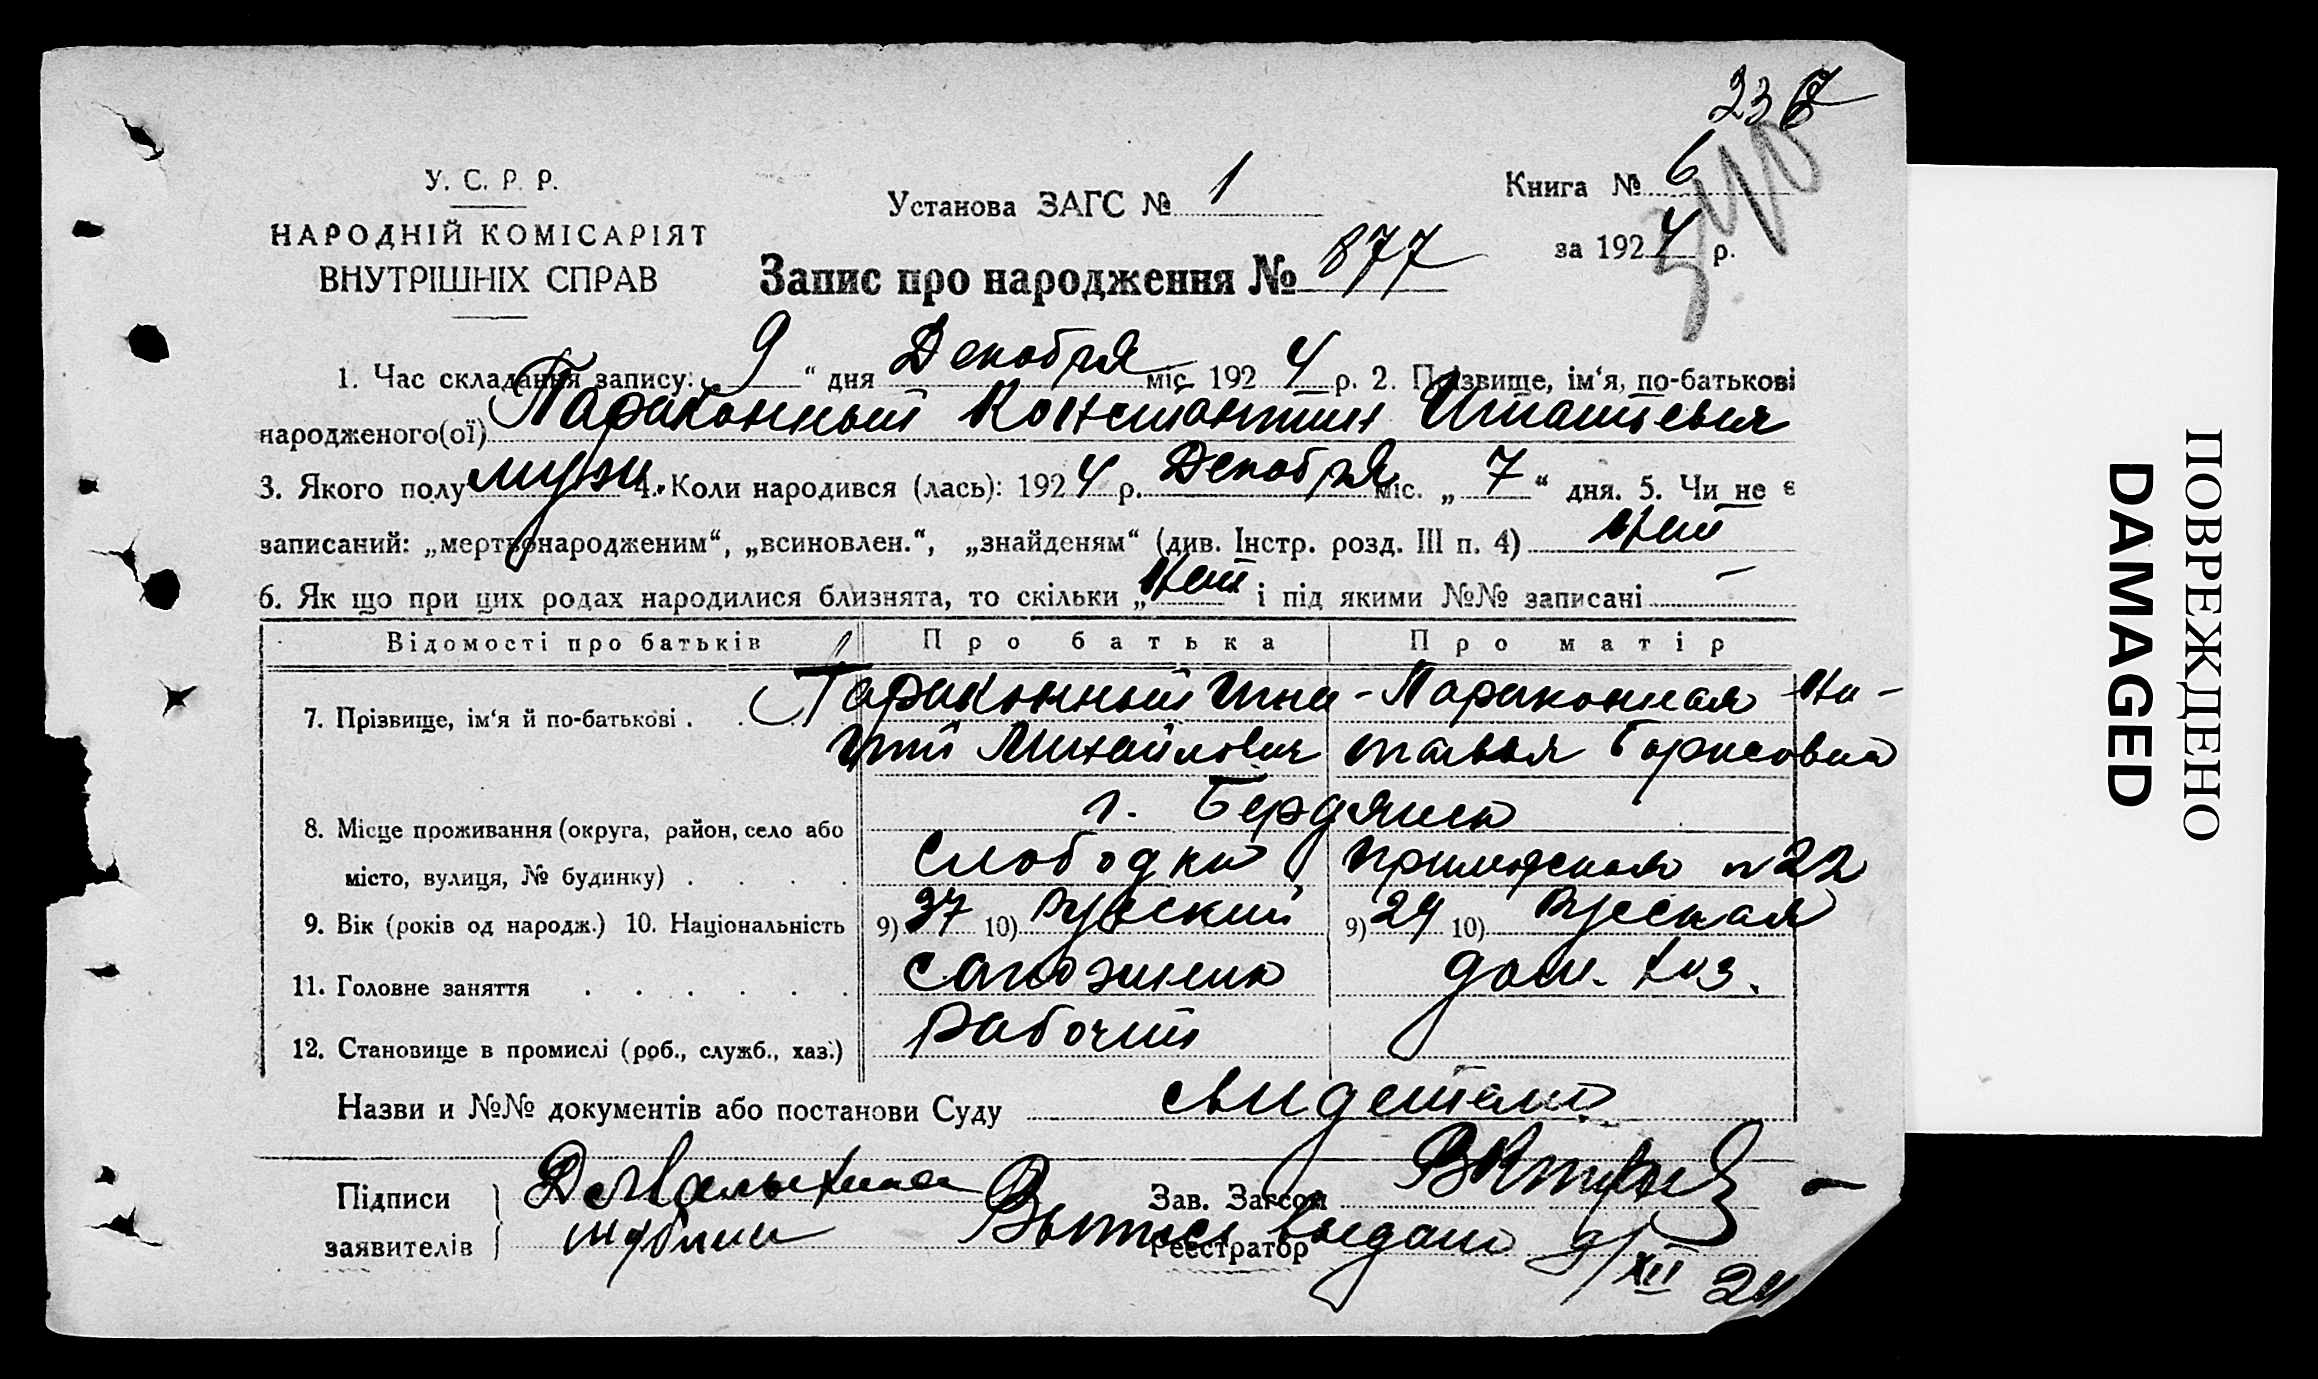 236
340
У. С. Р. Р.
НАРОДНІЙ КОМІСАРІЯТ
ВНУТРІШНІХ СПРАВ
Установа ЗАГС № 1
Книга № 6
за 1924 р.
Запис про народження № 877
1. Час складання запису: „ 9 “ дня Декабря міс. 1924 р. 2. Прізвище, ім‘я, по-батькові
народженого(ої) Параконный Константин Игнатьевич
3. Якого полу муж. 4. Коли народився (лась): 1924 р. Декабря міс. „ 7 “ дня. 5. Чи не є
записаний: „мертвонародженим“, „всиновлен.“, „знайденям“ (див. Інстр. розд. III п. 4) нет
6. Як що при цих родах народилися близнята, то скільки „ нет і під якими №№ записані —
Відомості про батьків Про батька Про матір
7. Прізвище, ім‘я й по-батькові . Параконный Игна- Параконная На-
тий Михайлович талья Борисовна
г. Бердянск
8. Місце проживання (округа, район, село або
місто, вулиця, № будинку) . . . . Слободка Приморская №22
9. Вік (років од народж.) 10. Національність 9) 37 10) Русский 9) 24 10) Русская
11. Головне заняття . . . . . . сапожник дом. хоз.
12. Становище в промислі (роб., служб., хаз.) Рабочий
Назви и №№ документів або постанови Суду свидетель.
Підписи
заявителів
Зав. Загсом
Реєстратор
Выпись выдана 9/XII 24
ПОВРЕЖДЕНО
DAMAGED